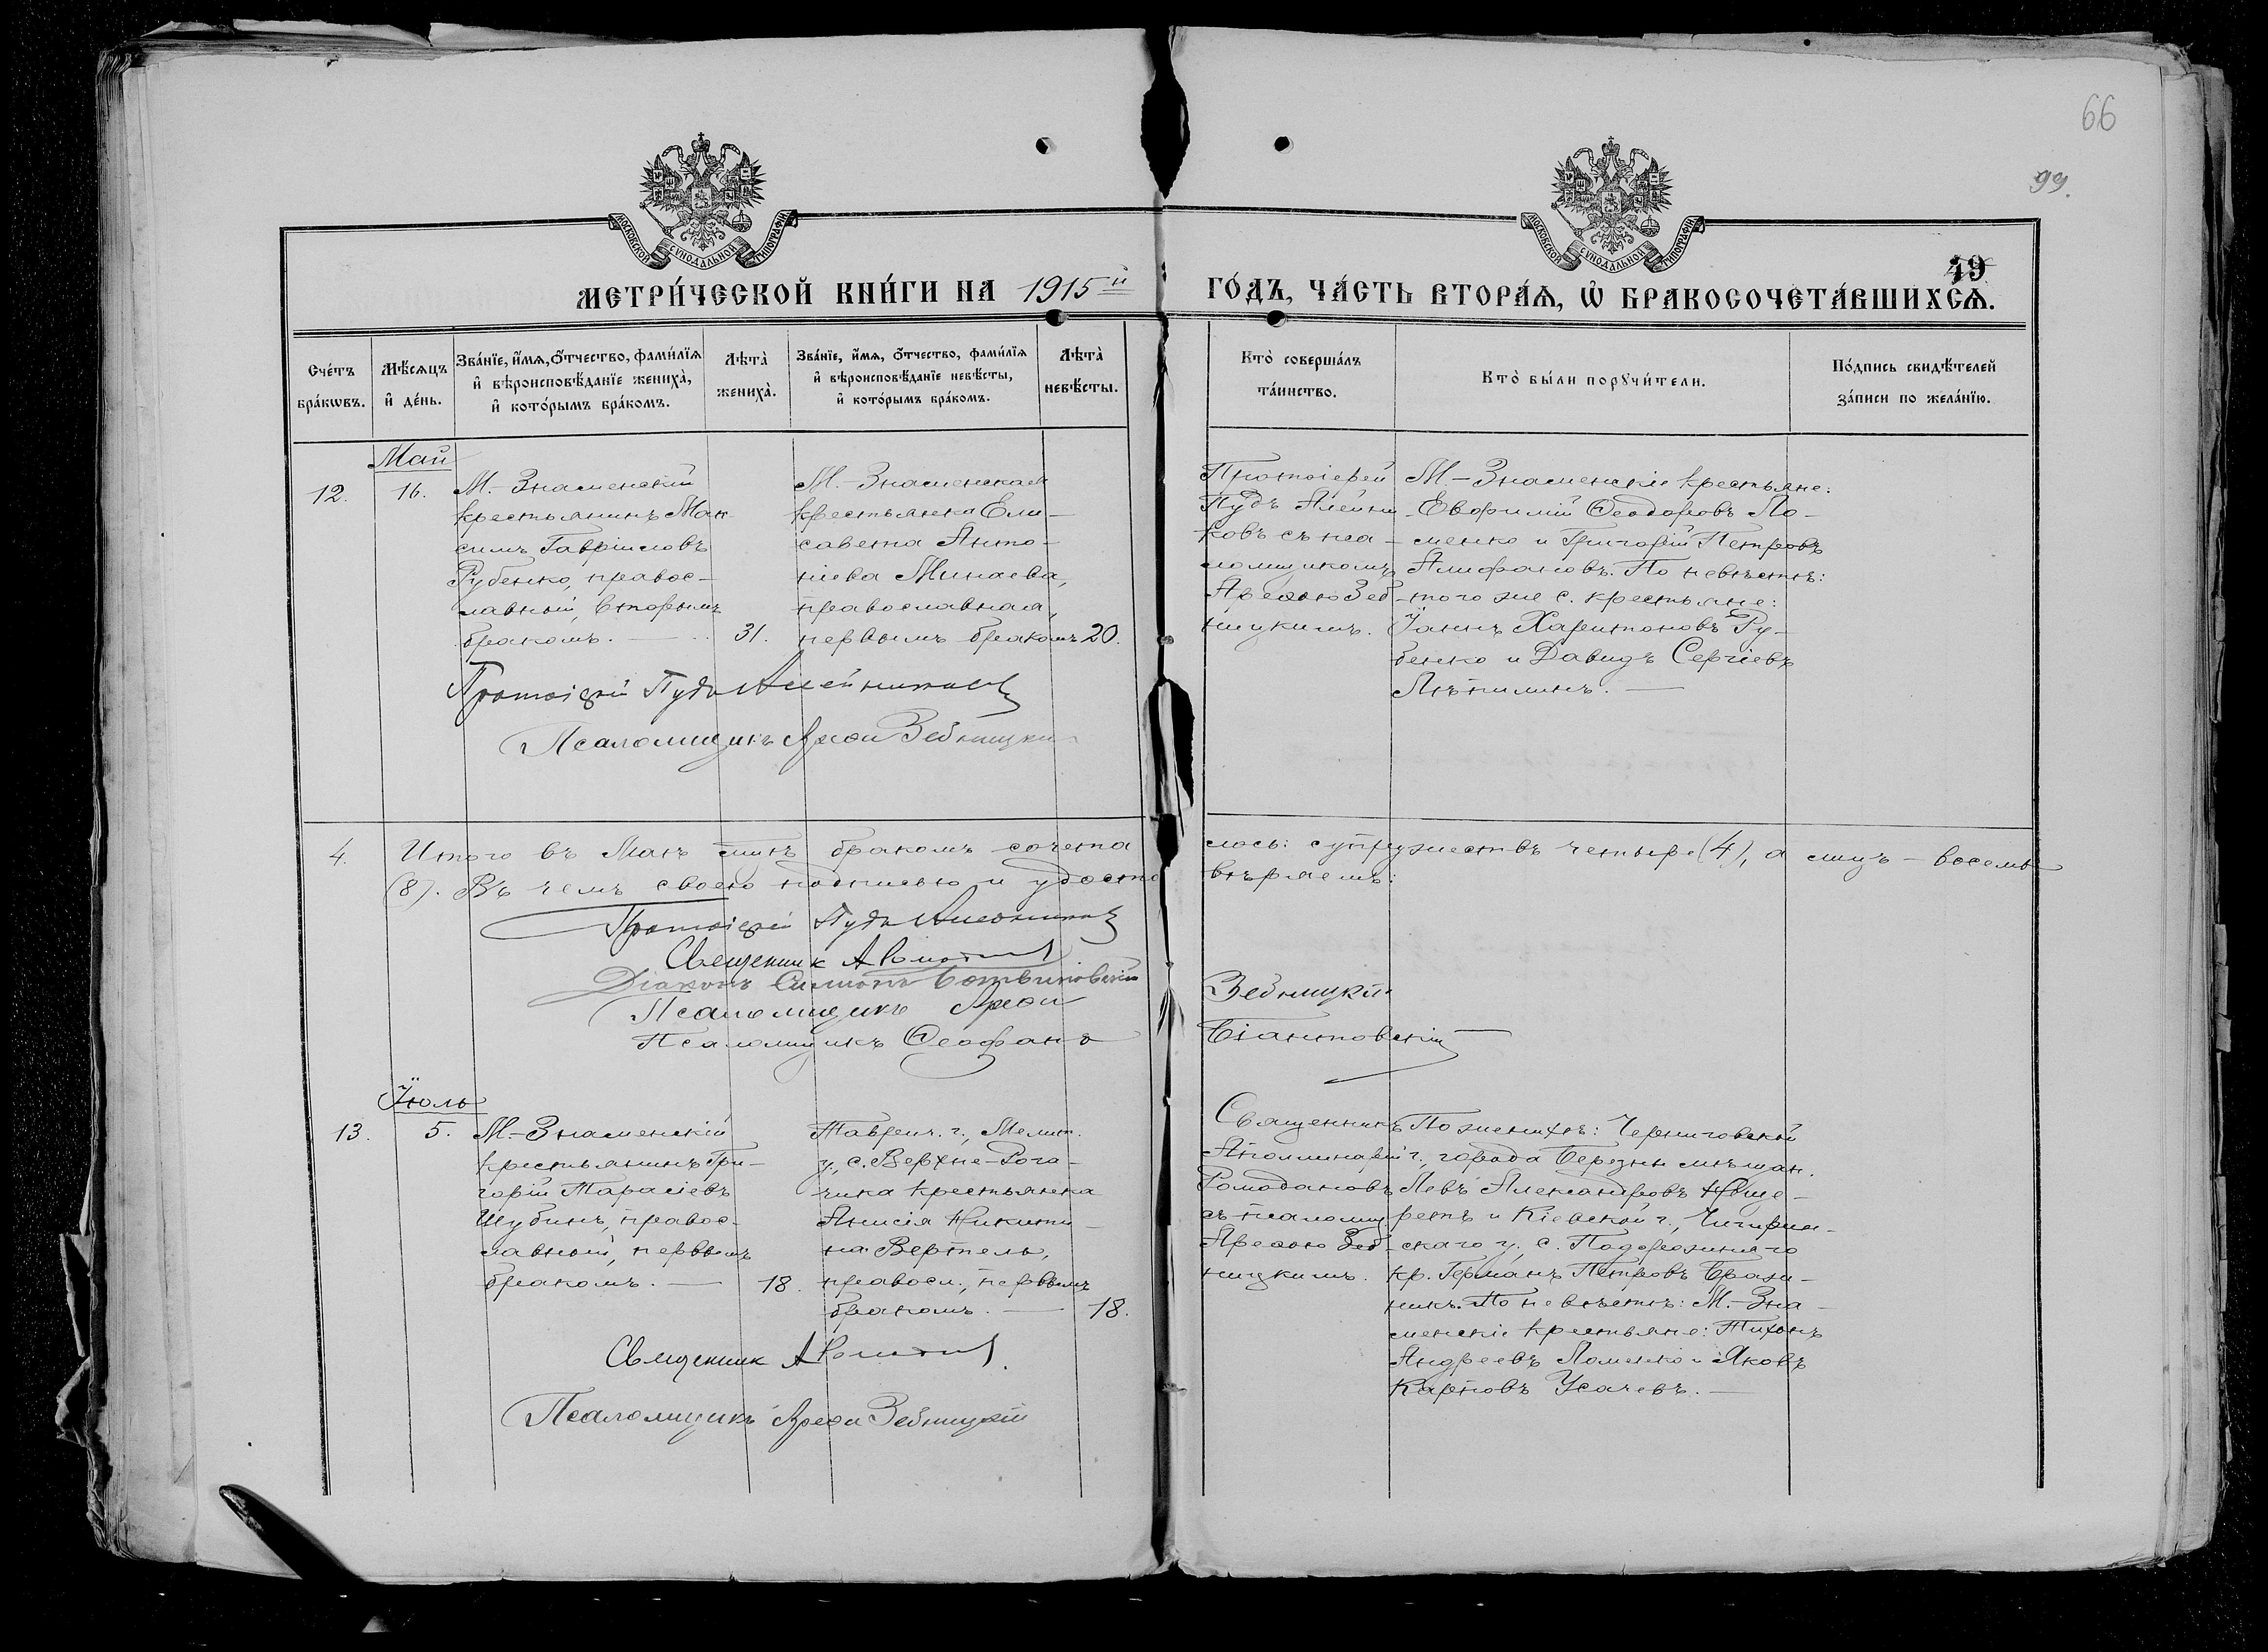 66
99.
49
МОСКОВСКОЙ СѴНОДАЛЬНОЙ ТИПОГРАФІИ
МОСКОВСКОЙ СѴНОДАЛЬНОЙ ТИПОГРАФІИ
МЕТРИ́ЧЕСКОЙ КНИ́ГИ НА 1915й ГО́ДЪ, ЧА́СТЬ ВТОРА́Ѧ, Ѡ҆ БРАКОСОЧЕТА́ВШИХСѦ.
Сче́тъ
бра́кѡвъ.
Мѣ́сѧцъ
и҆ де́нь.
Зва́нїе, и҆́мѧ, ѻ҆́тчество, фами́лїѧ
и҆ вѣроисповѣ́данїе жениха̀,
и҆ кото́рымъ бра́комъ.
Лѣта̀
жениха̀.
Зва́нїе, и҆́мѧ, ѻ҆́тчество, фами́лїѧ
и҆ вѣроисповѣ́данїе невѣ́сты,
и҆ кото́рымъ бра́комъ.
Лѣта̀
невѣ́сты.
Кто̀ соверша́лъ
та́инство.
Кто̀ бы́ли порꙋчи́тели.
По́дпись свидѣ́телей
за́писи по жела́нїю.
Май
12.
16.
М.-Знаменскій
крестьянинъ Мак-
симъ Гавріиловъ
Рубенко, правос-
лавный, вторымъ
бракомъ.
31.
М.-Знаменская
крестьянка Ели-
савета Анто-
ніева Минаева,
православная,
первымъ бракомъ
20.
Протоіерей
Пудъ Алейни-
ковъ съ пса-
ломщикомъ
Арефою Зеб-
ницкимъ.
М.-Знаменскіе крестьяне:
Евфимій Ѳеодоровъ Ло-
менко и Григорій Петровъ
Алифановъ. По невѣстѣ:
того же с. крестьяне:
Іоаннъ Харитоновъ Ру-
бенко и Давидъ Сергіевъ
Протоіерей Пудъ Алейниковъ
Псаломщикъ Арефа Зебницкій
4.
Итого въ Маѣ мцѣ бракомъ сочета
лось: супружествъ четыре (4), а лицъ – восемь
(8). Въ чемъ своею подписью и удосто
вѣряемъ:
Протоіерей Пудъ Алейниковъ
Священник А
Діаконъ Симеонъ
Псаломщикъ Арефа Зебницкій
Псаломщикъ Ѳеофанъ
Іюль
13.
5.
М.-Знаменскій
крестьянинъ Гри-
горій Тарасіевъ
Шубинъ, правос-
лавный, первымъ
бракомъ.
18.
Таврич. г., Мелит.
у., с. Верхне-Рога-
чика крестьянка
Анисія Никити-
на Вертель,
правосл., первымъ
бракомъ.
18.
Священникъ
Аполлинарій
Ромодановъ
съ псаломщ.
Арефою Зеб-
ницкимъ.
По женихѣ: Черниговской
г., города Березны мѣщан.
Левъ Александровъ
и Кіевской г., Чигирин-
скаго у., с. Подорожняго
кр. Германъ Петровъ Браж-
никъ. По невѣстѣ: М.-Зна-
менскіе крестьяне: Тихонъ
Андреевъ Ломенко и Яковъ
Карповъ Усачевъ.
Священник А
Псаломщикъ Арефа Зебницкій